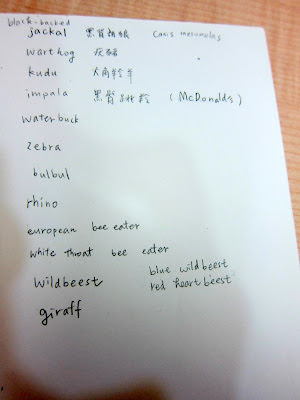 black-backed
jackal 黑背胡狼 Canis mesomelas
warthog 疣豬
kudu 大角羚羊
impala 黑背 羚 (McDonalds)
waterbuck
zebra
bulbul
rhino
european bee eater
white throat bee eater
wildbeest blue wildbeest
red heart beest
giraff